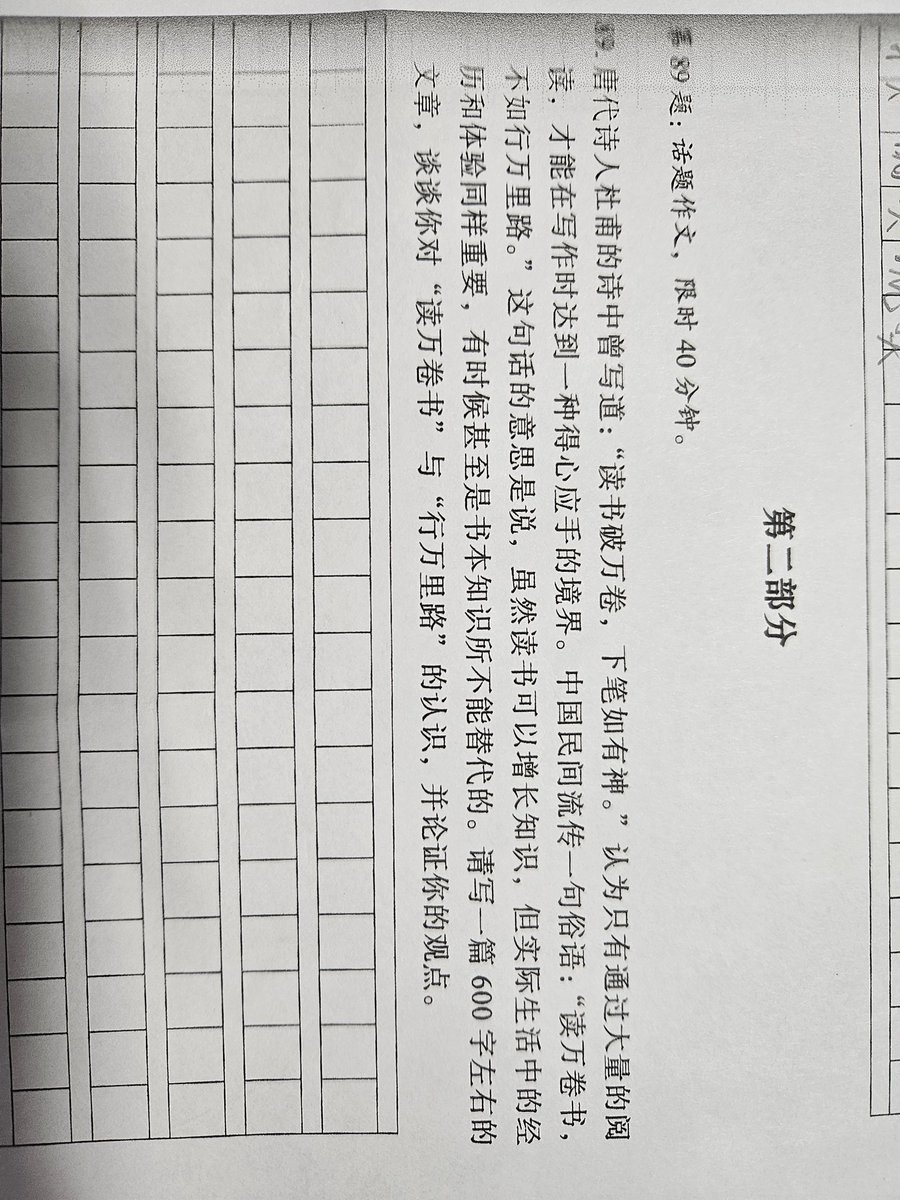 第二部分
89题：话题作文，限时 40 分钟。
唐代诗人杜甫的诗中曾写道：“读书破万卷，下笔如有神。”认为只有通过大量的阅
读，才能在写作时达到一种得心应手的境界。中国民间流传一句俗语：“读万卷书，
不如行万里路。”这句话的意思是说，虽然读书可以增长知识，但实际生活中的经
历和体验同样重要，有时候甚至是书本知识所不能替代的。请写一篇 600 字左右的
文章，谈谈你对“读万卷书”与“行万里路”的认识，并论证你的观点。